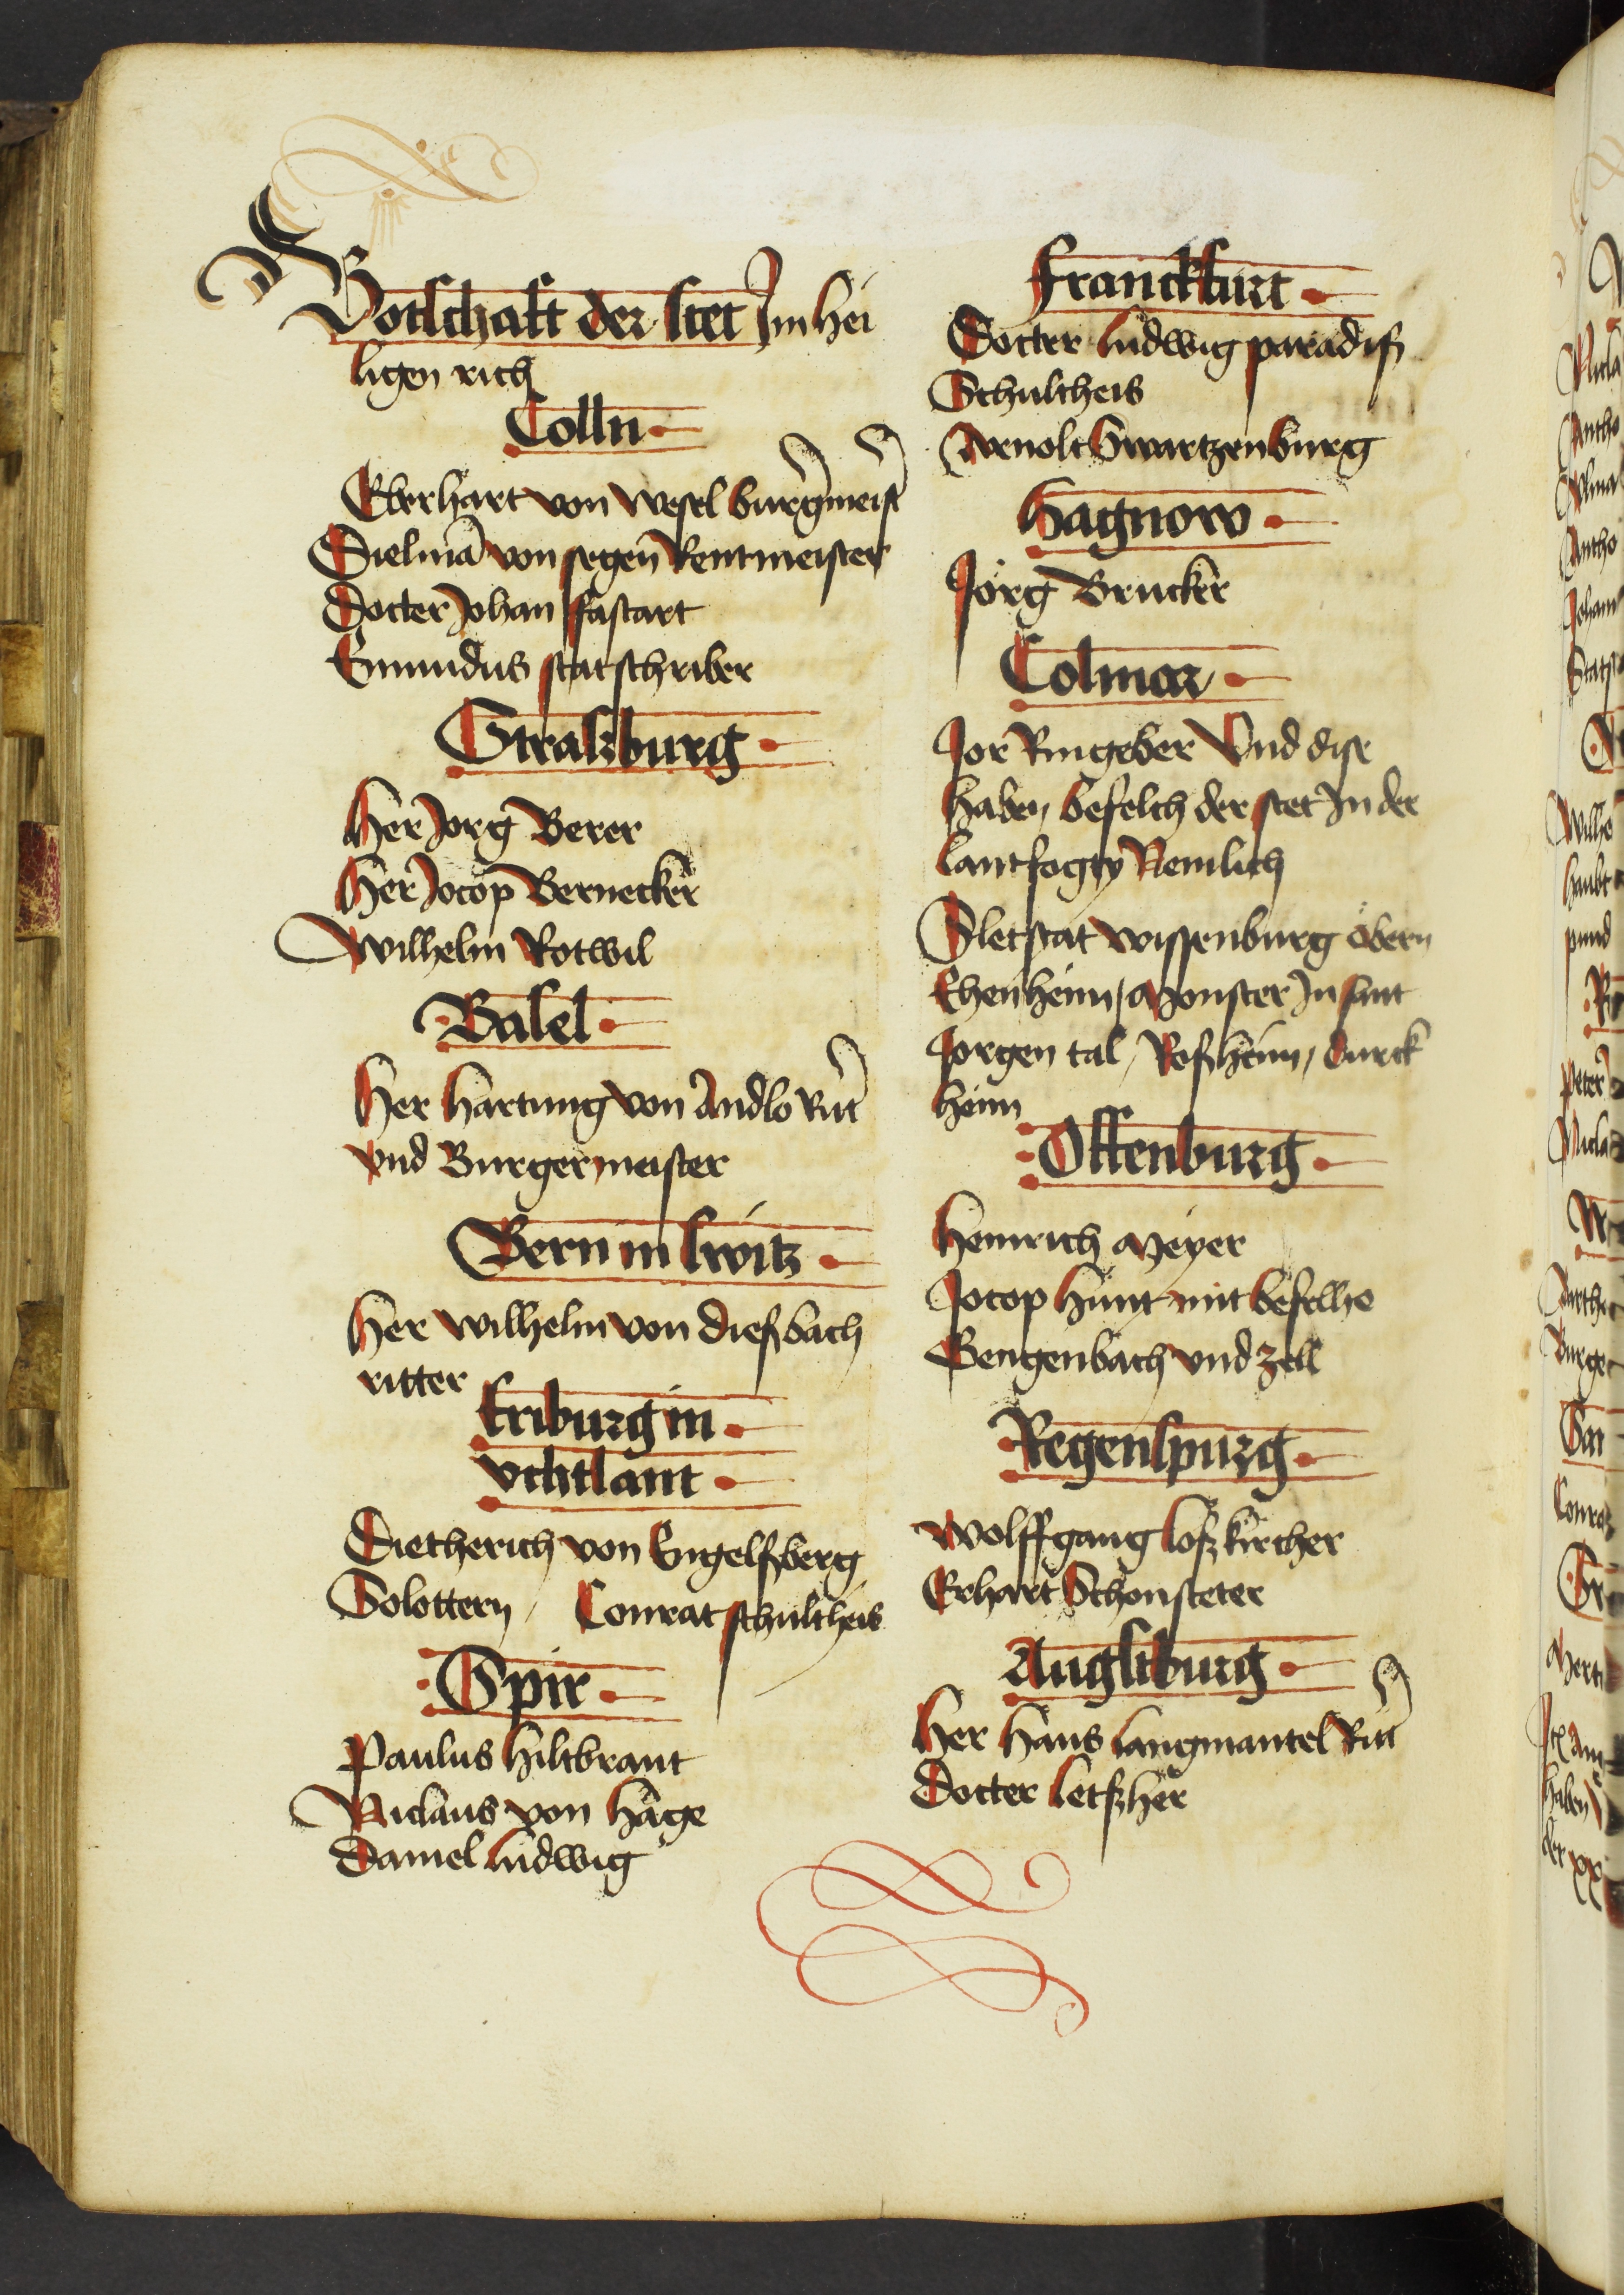 Botschaft der stet Jm hei
ligen rich
Colln
Eberhart von wesel burgmeist
Dielmā von segen Rentmeister
Docter Johan fastart
Emundus statschriber
Straszburg
Her Jorg Berer
Her Jocop Bernecker
Wilhelm Rotwil
Basel
Her hartung von Andlo Rit
vnd Burgermeister
Bern in switz
Her wilhelm von dieszbach
ritter
friburg in
vchtlant
Dietherich von Engelszberg
Solottern / Conrat schultheis
Spir
Paulus hiltbrant
Niclaus von hage
Daniel ludwig
franckfurt
Docter ludwig paradisz
Schultheis
Arnolt swartzenburg
Hagnow
Jörg Brucker
Colmar
Jor Ringeber Vnd dise
haben befelch der stet Jn der
lantfogty Nemlich
Sletstat wissenburg öbern
Ehenheim / Monster Jn sant
Jorgen tal / Roszheim / durck
heim
Offenburg
Heinrich Meyer
Jocop hunt mit befelhe
Gengenbach vnd zell
Regenspurg
Wolffgang loszkircher
Erhart Schonsteter
Augstburg
Her Hans langmantel Rit
Docter letszher